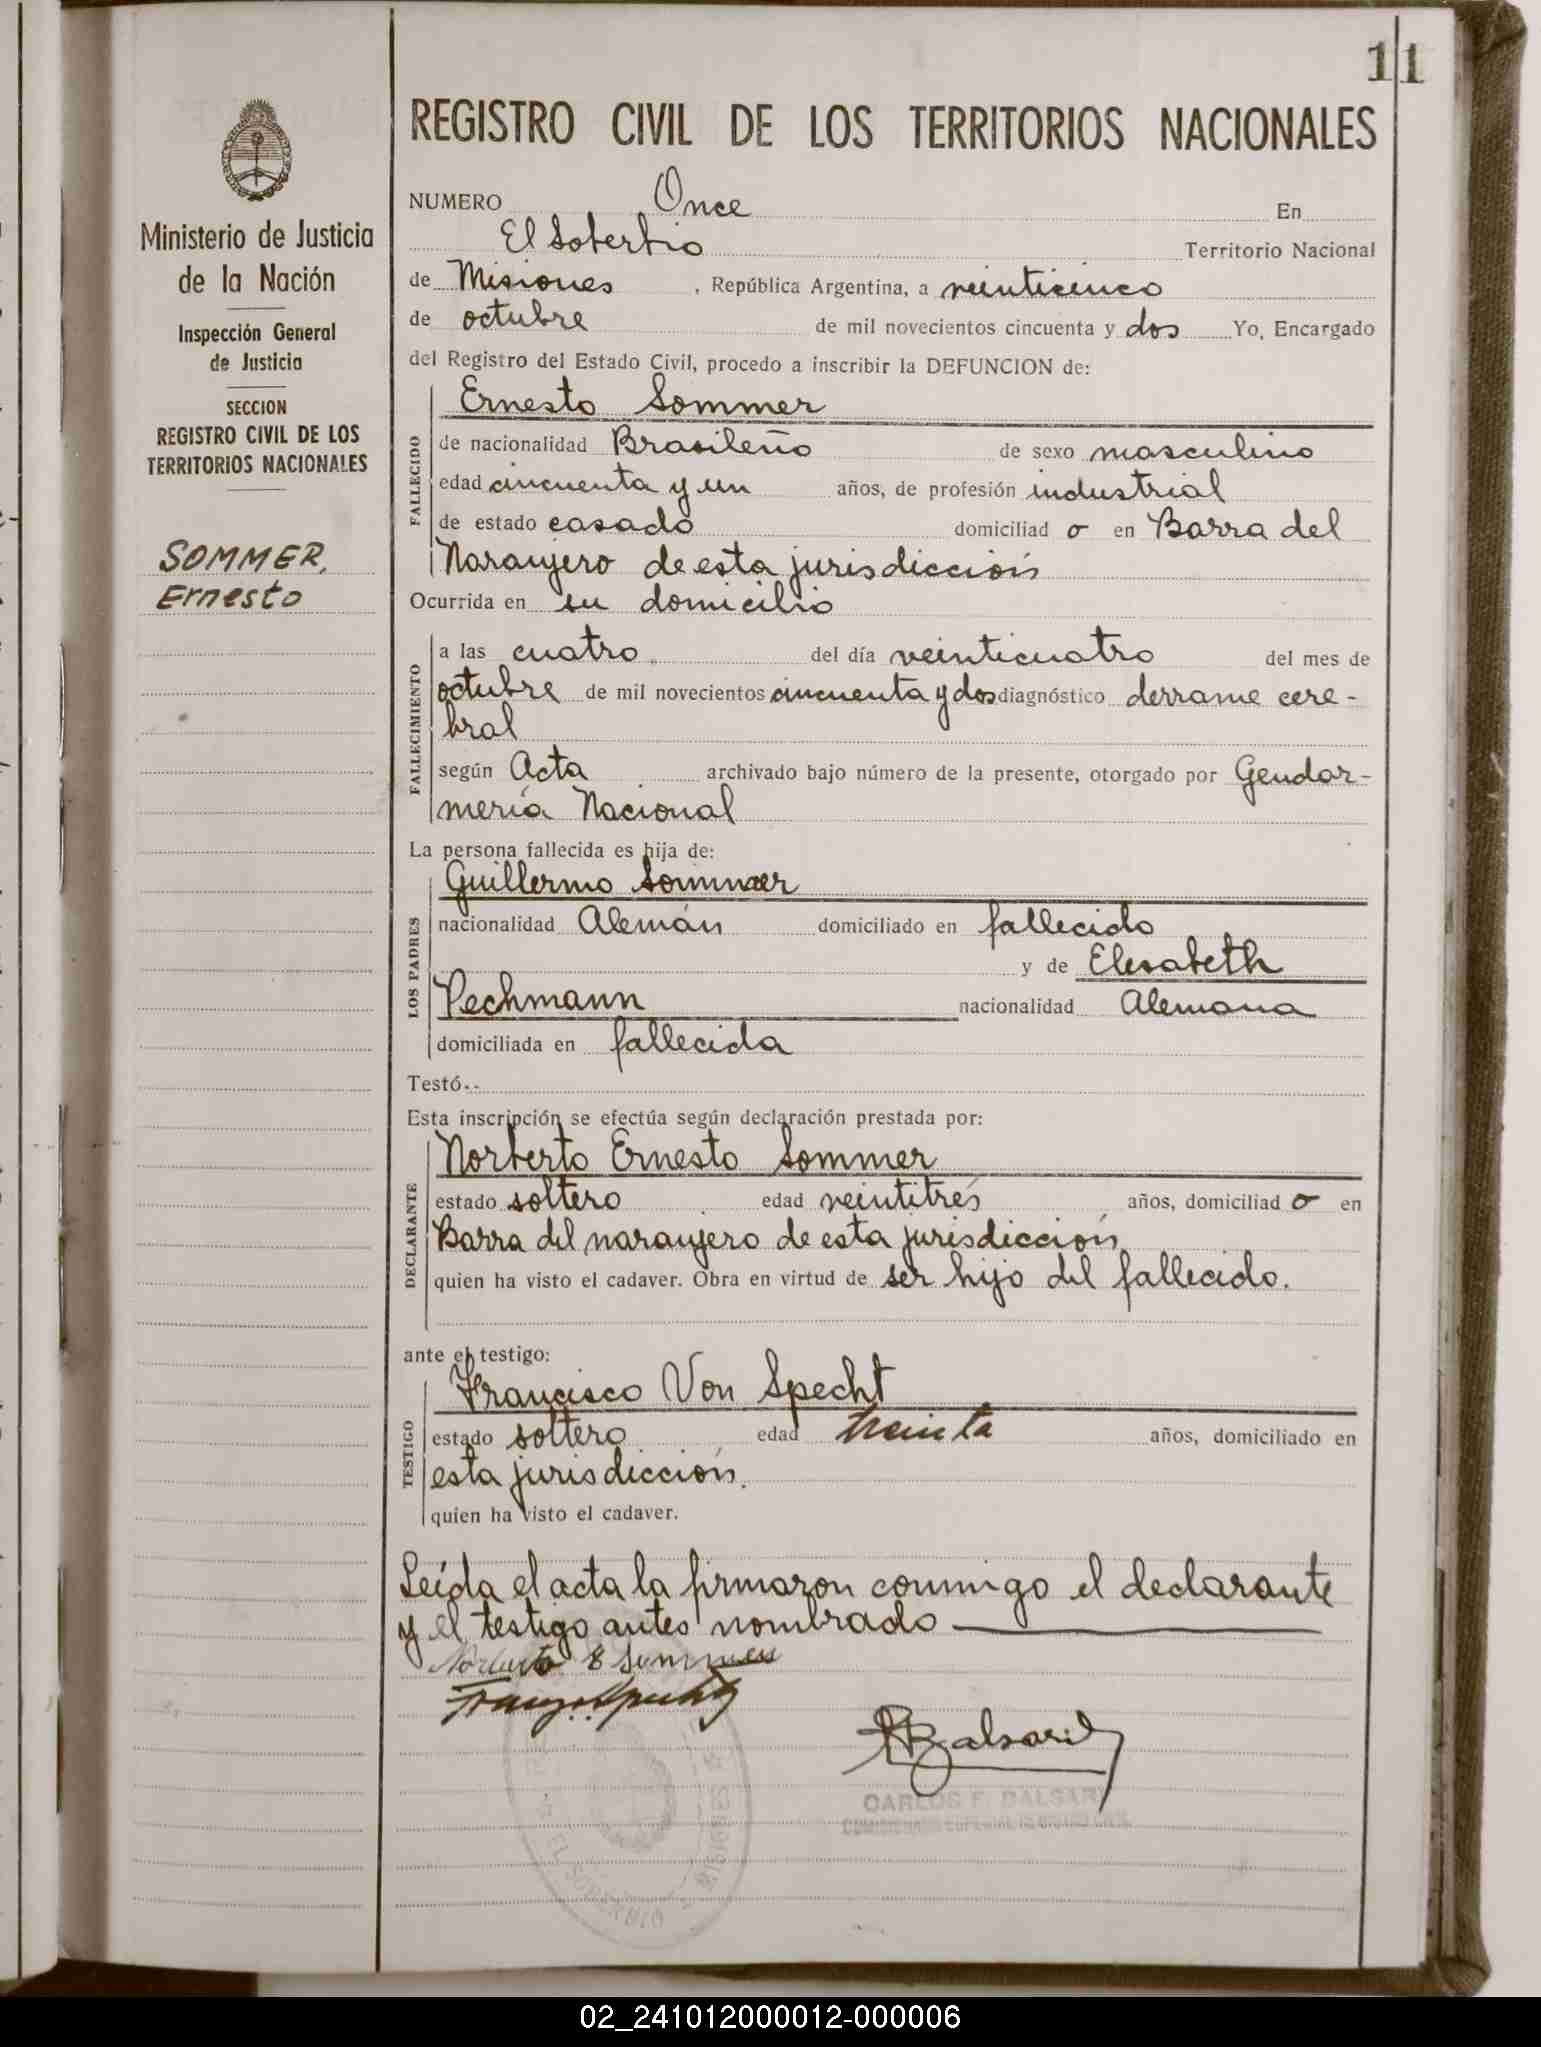 11
REGISTRO CIVIL DE LOS TERRITORIOS NACIONALES
Ministerio de Justicia
de la Nación
Inspección General
de Justicia
SECCION
REGISTRO CIVIL DE LOS
TERRITORIOS NACIONALES
SOMMER,
Ernesto
NUMERO Once En
El Soberbio Territorio Nacional
de Misiones, República Argentina, a veinticinco
de octubre de mil novecientos cincuenta y dos Yo, Encargado
del Registro del Estado Civil, procedo a inscribir la DEFUNCION de:
Ernesto Sommer
FALLECIDO
de nacionalidad Brasileño de sexo masculino
edad cincuenta y un años, de profesión industrial
de estado casado domiciliad o en Barra del
Naranjero de esta jurisdicción
Ocurrida en su domicilio
FALLECIMIENTO
a las cuatro del día veinticuatro del mes de
octubre de mil novecientos cincuenta y dos diagnóstico derrame cere-
bral
según Acta archivado bajo número de la presente, otorgado por Gendar-
mería Nacional
La persona fallecida es hija de:
LOS PADRES
Guillermo Sommer
nacionalidad Alemán domiciliado en fallecido
y de Elesabeth
Pechmann nacionalidad Alemana
domiciliada en fallecida
Testó..
Esta inscripción se efectúa según declaración prestada por:
DECLARANTE
Norberto Ernesto Sommer
estado soltero edad veintitrés años, domiciliad o en
Barra del naranjero de esta jurisdicción
quien ha visto el cadaver. Obra en virtud de ser hijo del fallecido.
ante el testigo:
TESTIGO
Francisco Von Specht
estado soltero edad treinta años, domiciliado en
esta jurisdicción.
quien ha visto el cadaver.
Leída el acta la firmaron conmigo el declarante
y el testigo antes nombrado
Norberto E Sommer
CARLOS F. BALSARI
EL SOBERBIO
02_241012000012-000006